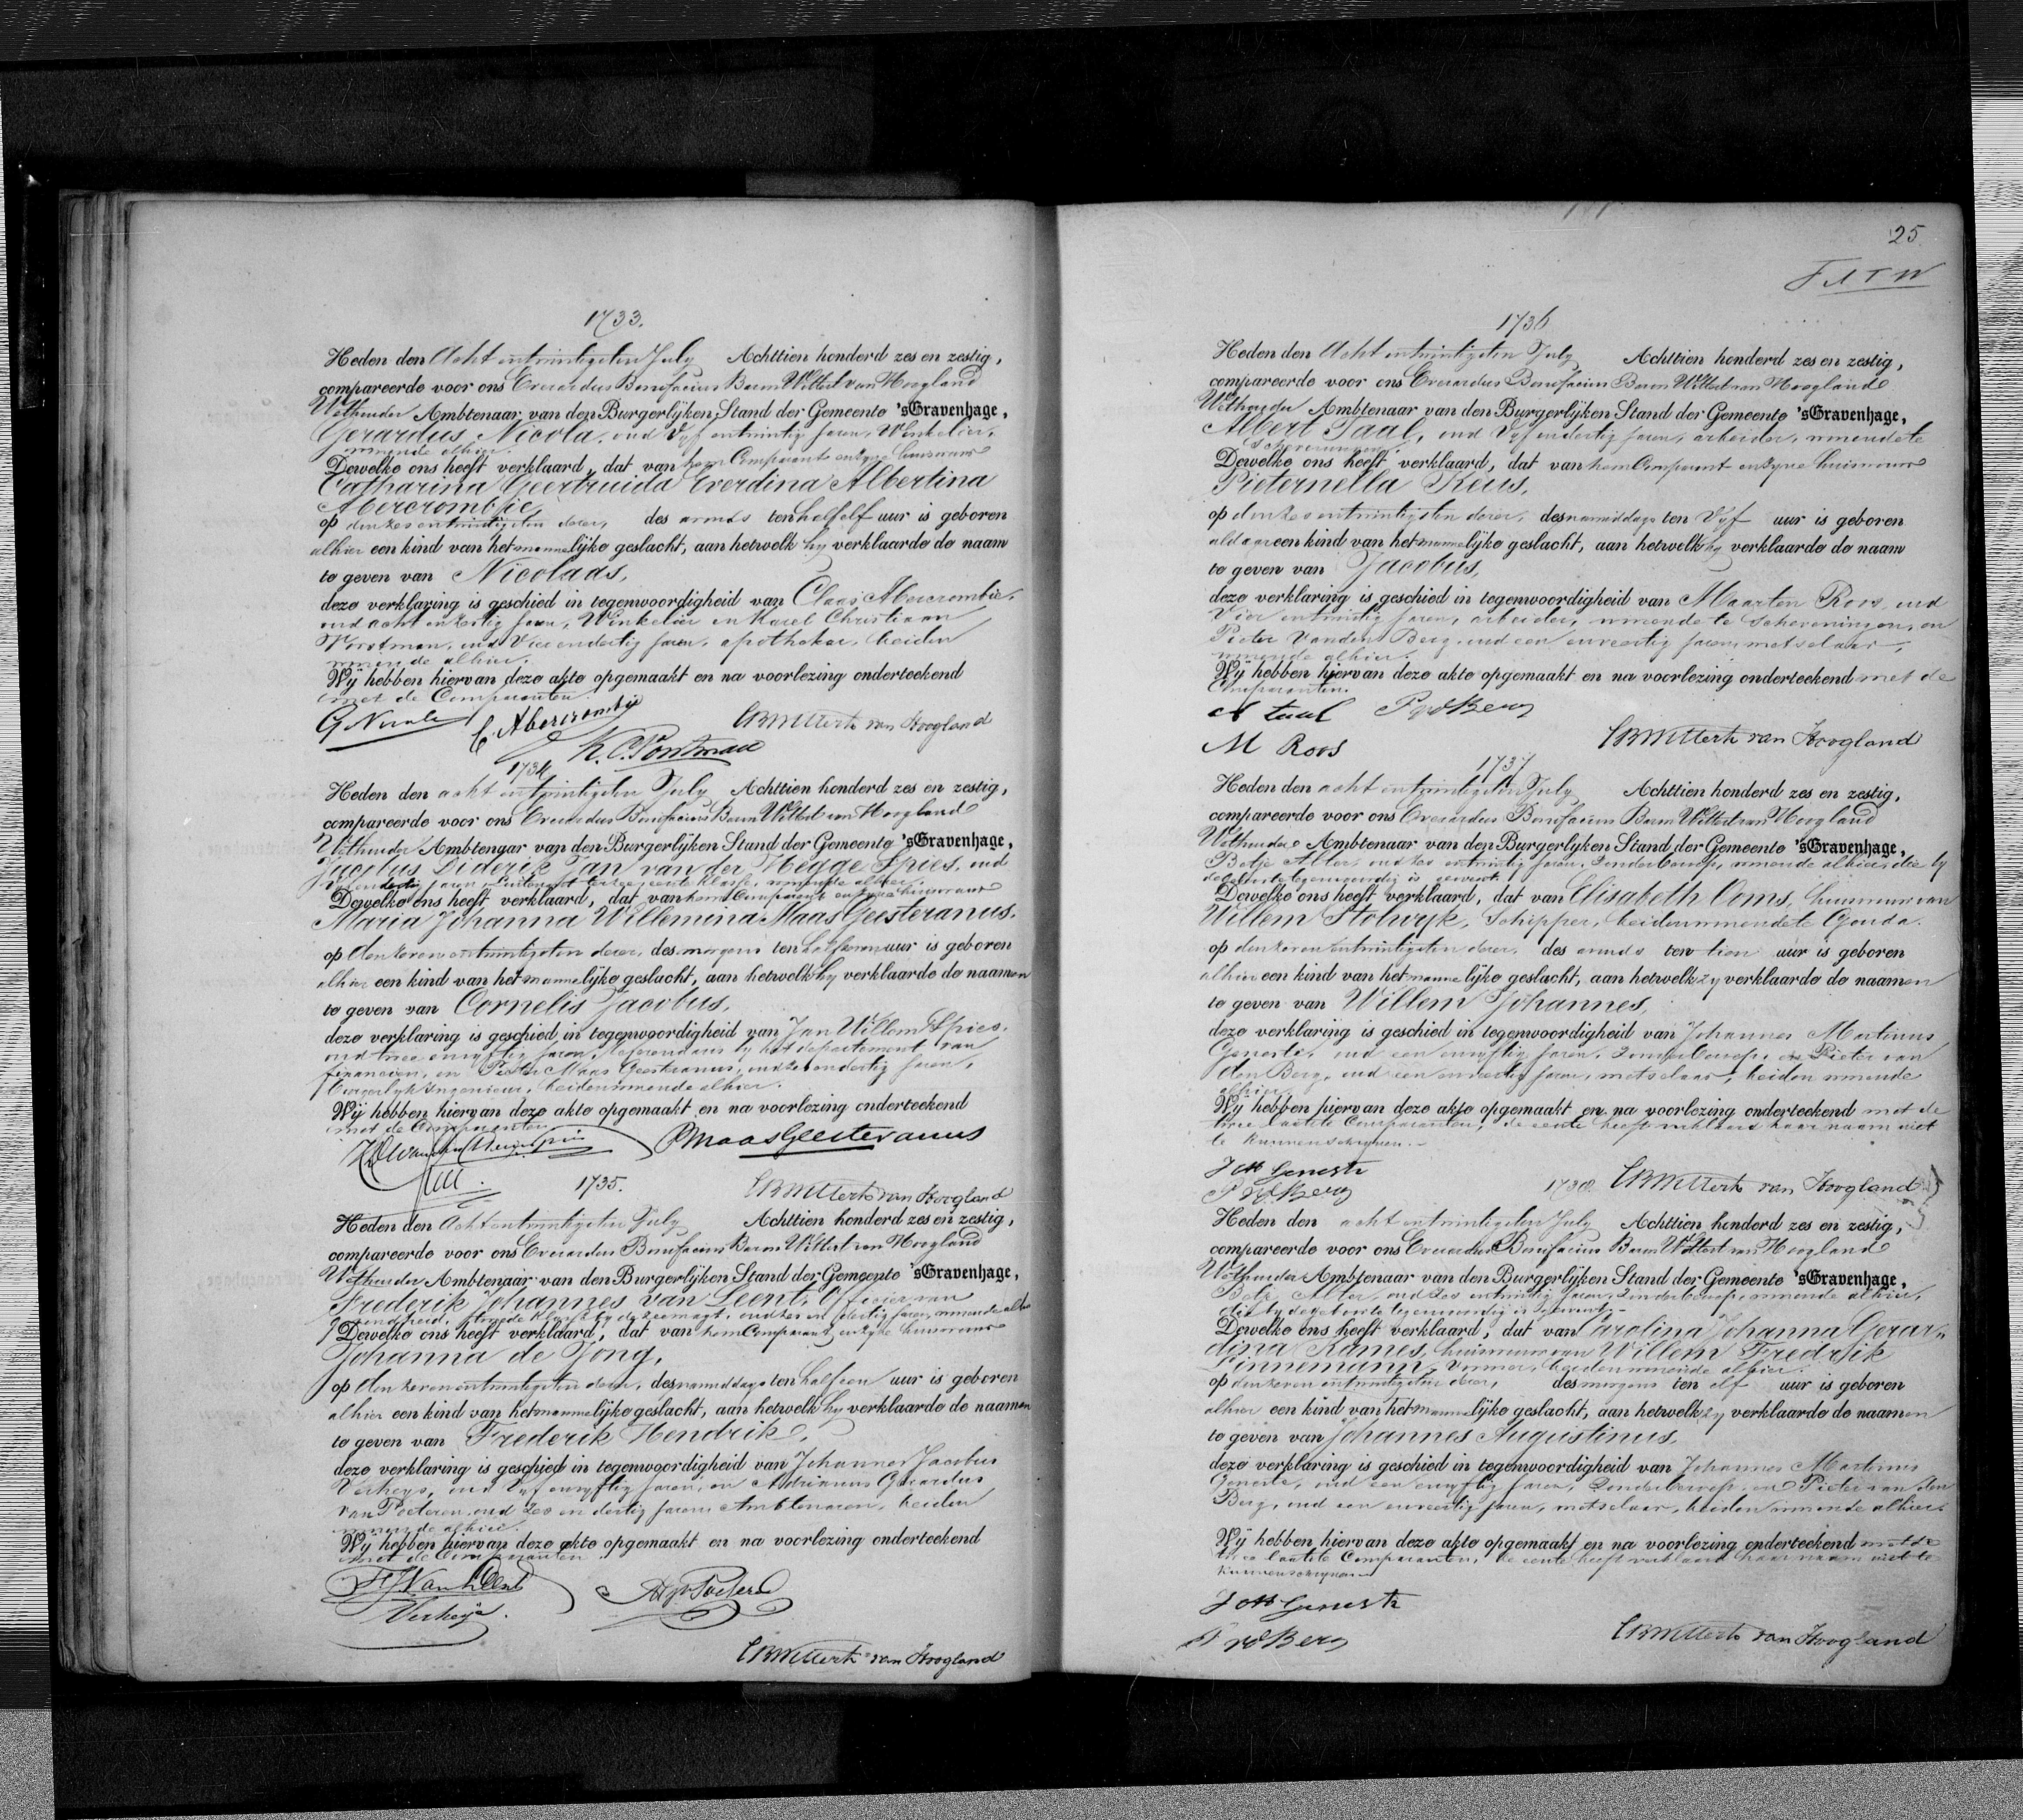 1733.
Heden den Acht en twintigsten July Achttien honderd zes en zestig,
compareerde voor ons Everardus Bonifacius Baron Wittert van Hoogland
Wethouder Ambtenaar van den Burgerlijken Stand der Gemeente 'sGravenhage,
Gerardus Nicola, oud Vyf en twintig jaren, Winkelier,
wonende alhier.
Dewelke ons heeft verklaard, dat van hem Comparant en zyne huisvrouw
Catharina Geertruida Everdina Albertina
Abercrombie,
op den zes en twintigsten dezer, des avonds ten half elf uur is geboren
alhier een kind van het mannelijke geslacht, aan hetwelk hy verklaarde de naam
te geven van Nicolaas,
deze verklaring is geschied in tegenwoordigheid van Claas Abercrombie,
oud acht en zestig jaren, Winkelier en Karel Christiaan
oud Vier en dertig jaren, apotheker, beiden
wonende alhier.
Wij hebben hiervan deze akte opgemaakt en na voorlezing onderteekend
met de Comparanten.
G Nicola C. Abercrombie EBWittert van Hoogland
K. C.
1734
Heden den acht en twintigsten July Achttien honderd zes en zestig,
compareerde voor ons Everardus Bonifacius Baron Wittert van Hoogland
Wethouder Ambtenaar van den Burgerlijken Stand der Gemeente 'sGravenhage,
Jacobus Diderik Jan van der Hegge Spies, oud
dertig jaren, Luitenant ter zee eerste klasse, wonende alhier,
Dewelke ons heeft verklaard, dat van hem Comparant en zyne huisvrouw
Maria Johanna Willemina Maas Geesteranus,
op den zeven en twintigsten dezer, des morgens ten half uur is geboren
alhier een kind van het mannelijke geslacht, aan hetwelk hy verklaarde de naamen
te geven van Cornelis Jacobus,
deze verklaring is geschied in tegenwoordigheid van Jan Willem Spies,
oud twee en vyftig jaren, referendaris by het departement van
financien, en Pieter Maas Geesteranus, oud en dertig jaren,
burgerlyk Ingenieur, beiden wonende alhier.
Wij hebben hiervan deze akte opgemaakt en na voorlezing onderteekend
met de Comparanten
PMaasGeesteranus
1735. EBWittert van Hoogland
Heden den Acht en twintigsten July Achttien honderd zes en zestig,
compareerde voor ons Everardus Bonifacius Baron Wittert van Hoogland
Wethouder Ambtenaar van den Burgerlijken Stand der Gemeente 'sGravenhage,
Frederik Johannes van Leent, Officier van
gezondheid, klasse by de zeemagt, oud zes en dertig jaren, wonende alhier
Dewelke ons heeft verklaard, dat van hem Comparant en zyne huisvrouw
Johanna de Jong,
op den zeven en twintigsten dezer, des namiddags ten half een uur is geboren
alhier een kind van het mannelijke geslacht, aan hetwelk hy verklaarde de naamen
te geven van Frederik Hendrik,
deze verklaring is geschied in tegenwoordigheid van Johannes Jacobus
Verheys, oud Vyf en vyftig jaren, en Adrianus Gerardus
van Poeteren, oud zes en dertig jaren Ambtenaren, beiden
wonende alhier.
Wij hebben hiervan deze akte opgemaakt en na voorlezing onderteekend
met de Comparanten
FJ van Leent AG v Poeteren
Verheys.
EBWittert van Hoogland
25
1736
Heden den Acht en twintigsten July Achttien honderd zes en zestig,
compareerde voor ons Everardus Bonifacius Baron Wittert van Hoogland
Wethouder Ambtenaar van den Burgerlijken Stand der Gemeente 'sGravenhage,
Albert Taal, oud Vyf en dertig jaren, arbeider, wonende te
Scheveningen,
Dewelke ons heeft verklaard, dat van hem Comparant en zyne huisvrouw
Pieternella Reus,
op den zes en twintigsten dezer, des namiddags ten Vyf uur is geboren
aldaar een kind van het mannelijke geslacht, aan hetwelk hy verklaarde de naam
te geven van Jacobus,
deze verklaring is geschied in tegenwoordigheid van Maarten Roos, oud
Vier en twintig jaren, arbeider, wonende te Scheveningen, en
Pieter van den Berg, oud een en veertig jaren, metselaar,
wonende alhier.
Wij hebben hiervan deze akte opgemaakt en na voorlezing onderteekend met de
Comparanten.
A taal P vd Berg
M Roos EBWittert van Hoogland
1737
Heden den acht en twintigsten July Achttien honderd zes en zestig,
compareerde voor ons Everardus Bonifacius Baron Wittert van Hoogland
Wethouder Ambtenaar van den Burgerlijken Stand der Gemeente 'sGravenhage,
Betje Alter, oud zes en twintig jaren, zonder beroep, wonende alhier, die by
de geboorte tegenwoordig is geweest.
Dewelke ons heeft verklaard, dat van Elisabeth Ooms, huisvrouw van
Willem Stolwyk, Schipper, beiden wonende te Gouda.
op den zeven en twintigsten dezer, des avonds ten tien uur is geboren
alhier een kind van het mannelijke geslacht, aan hetwelk zy verklaarde de naamen
te geven van Willem Johannes,
deze verklaring is geschied in tegenwoordigheid van Johannes Martinus
Geneste, oud een en vyftig jaren, zonder beroep, en Pieter van
den Berg, oud een en veertig jaren, metselaar, beiden wonende
alhier.
Wij hebben hiervan deze akte opgemaakt en na voorlezing onderteekend met de
twee laatste Comparanten, de eerste heeft verklaard haar naam niet
te kunnen schryven.
J M Geneste
P vd Berg
1738. EBWittert van Hoogland
Heden den acht en twintigsten July Achttien honderd zes en zestig,
compareerde voor ons Everardus Bonifacius Baron Wittert van Hoogland
Wethouder Ambtenaar van den Burgerlijken Stand der Gemeente 'sGravenhage,
Betje Alter, oud zes en twintig jaren, zonder beroep, wonende alhier,
die by de geboorte tegenwoordig is geweest,
Dewelke ons heeft verklaard, dat van Carolina Johanna Gerar-
dina Kamus, huisvrouw van Willem Fredrik
Linnemann, beiden wonende alhier.
op den zeven en twintigsten dezer, des morgens ten elf uur is geboren
alhier een kind van het mannelijke geslacht, aan hetwelk zy verklaarde de naamen
te geven van Johannes Augustinus,
deze verklaring is geschied in tegenwoordigheid van Johannes Martinus
Geneste, oud een en vyftig jaren, zonder beroep, en Pieter van den
Berg, oud een en veertig jaren, metselaar, beiden wonende alhier.
Wij hebben hiervan deze akte opgemaakt en na voorlezing onderteekend met de
twee laatste Comparanten, de eerste heeft verklaard haar naam niet te
kunnen schryven
J M Geneste
P vd Berg EBWittert van Hoogland